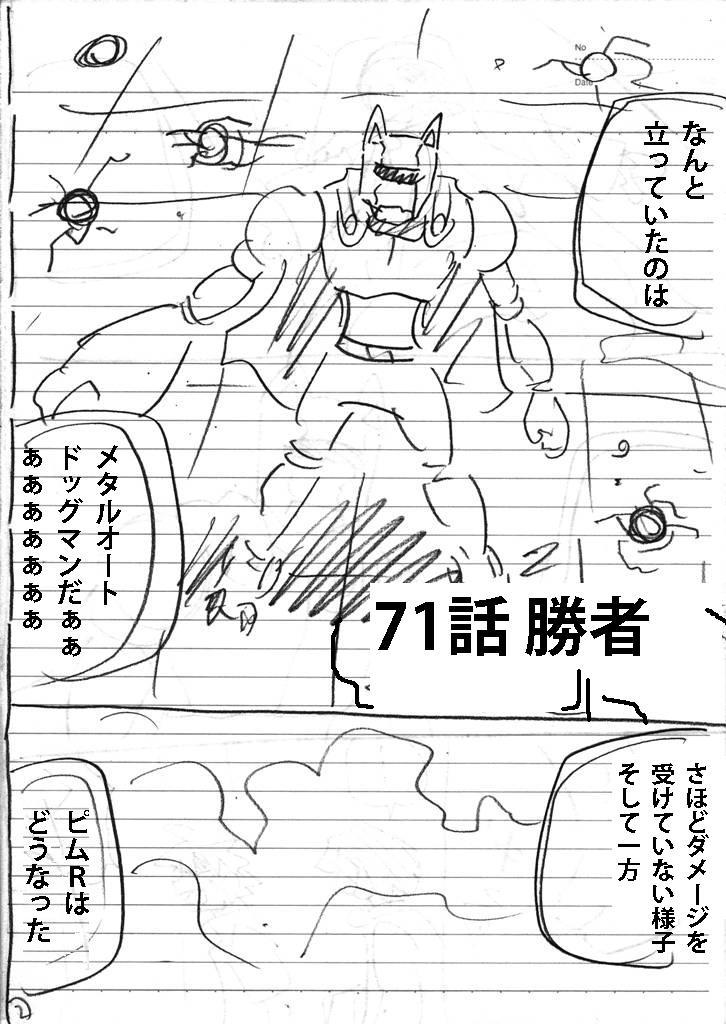 なんと
立っていたのは
メタルオート
ドッグマンだぁぁ
ぁぁぁぁぁぁぁ
71話 勝者
さほどダメージを
受けていない様子
そして一方
ピムRは
どうなった
No
Date
2